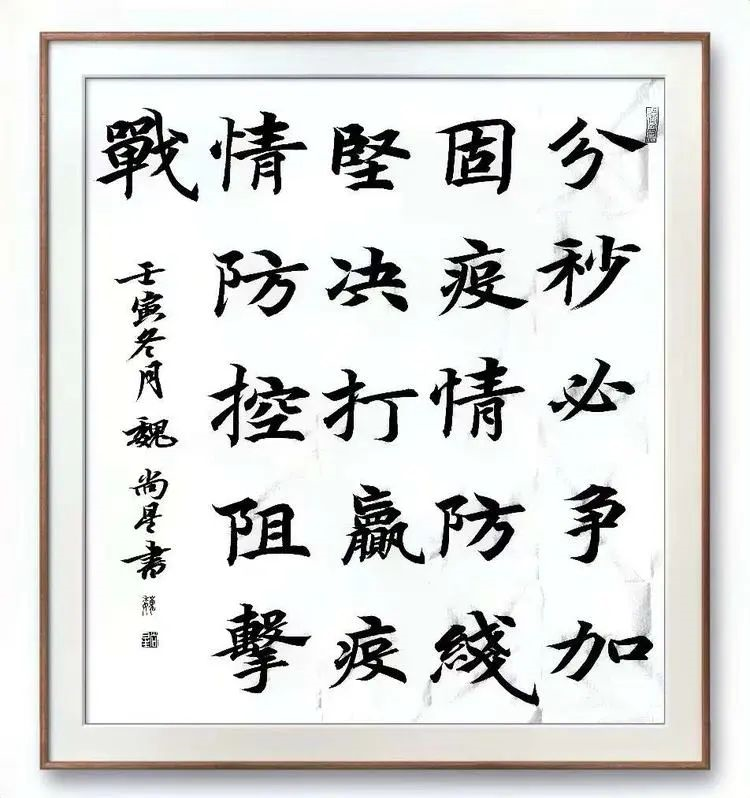 分秒必争加
固疫情防綫
堅决打贏疫
情防控阻擊
戰
壬寅冬月魏尚星書